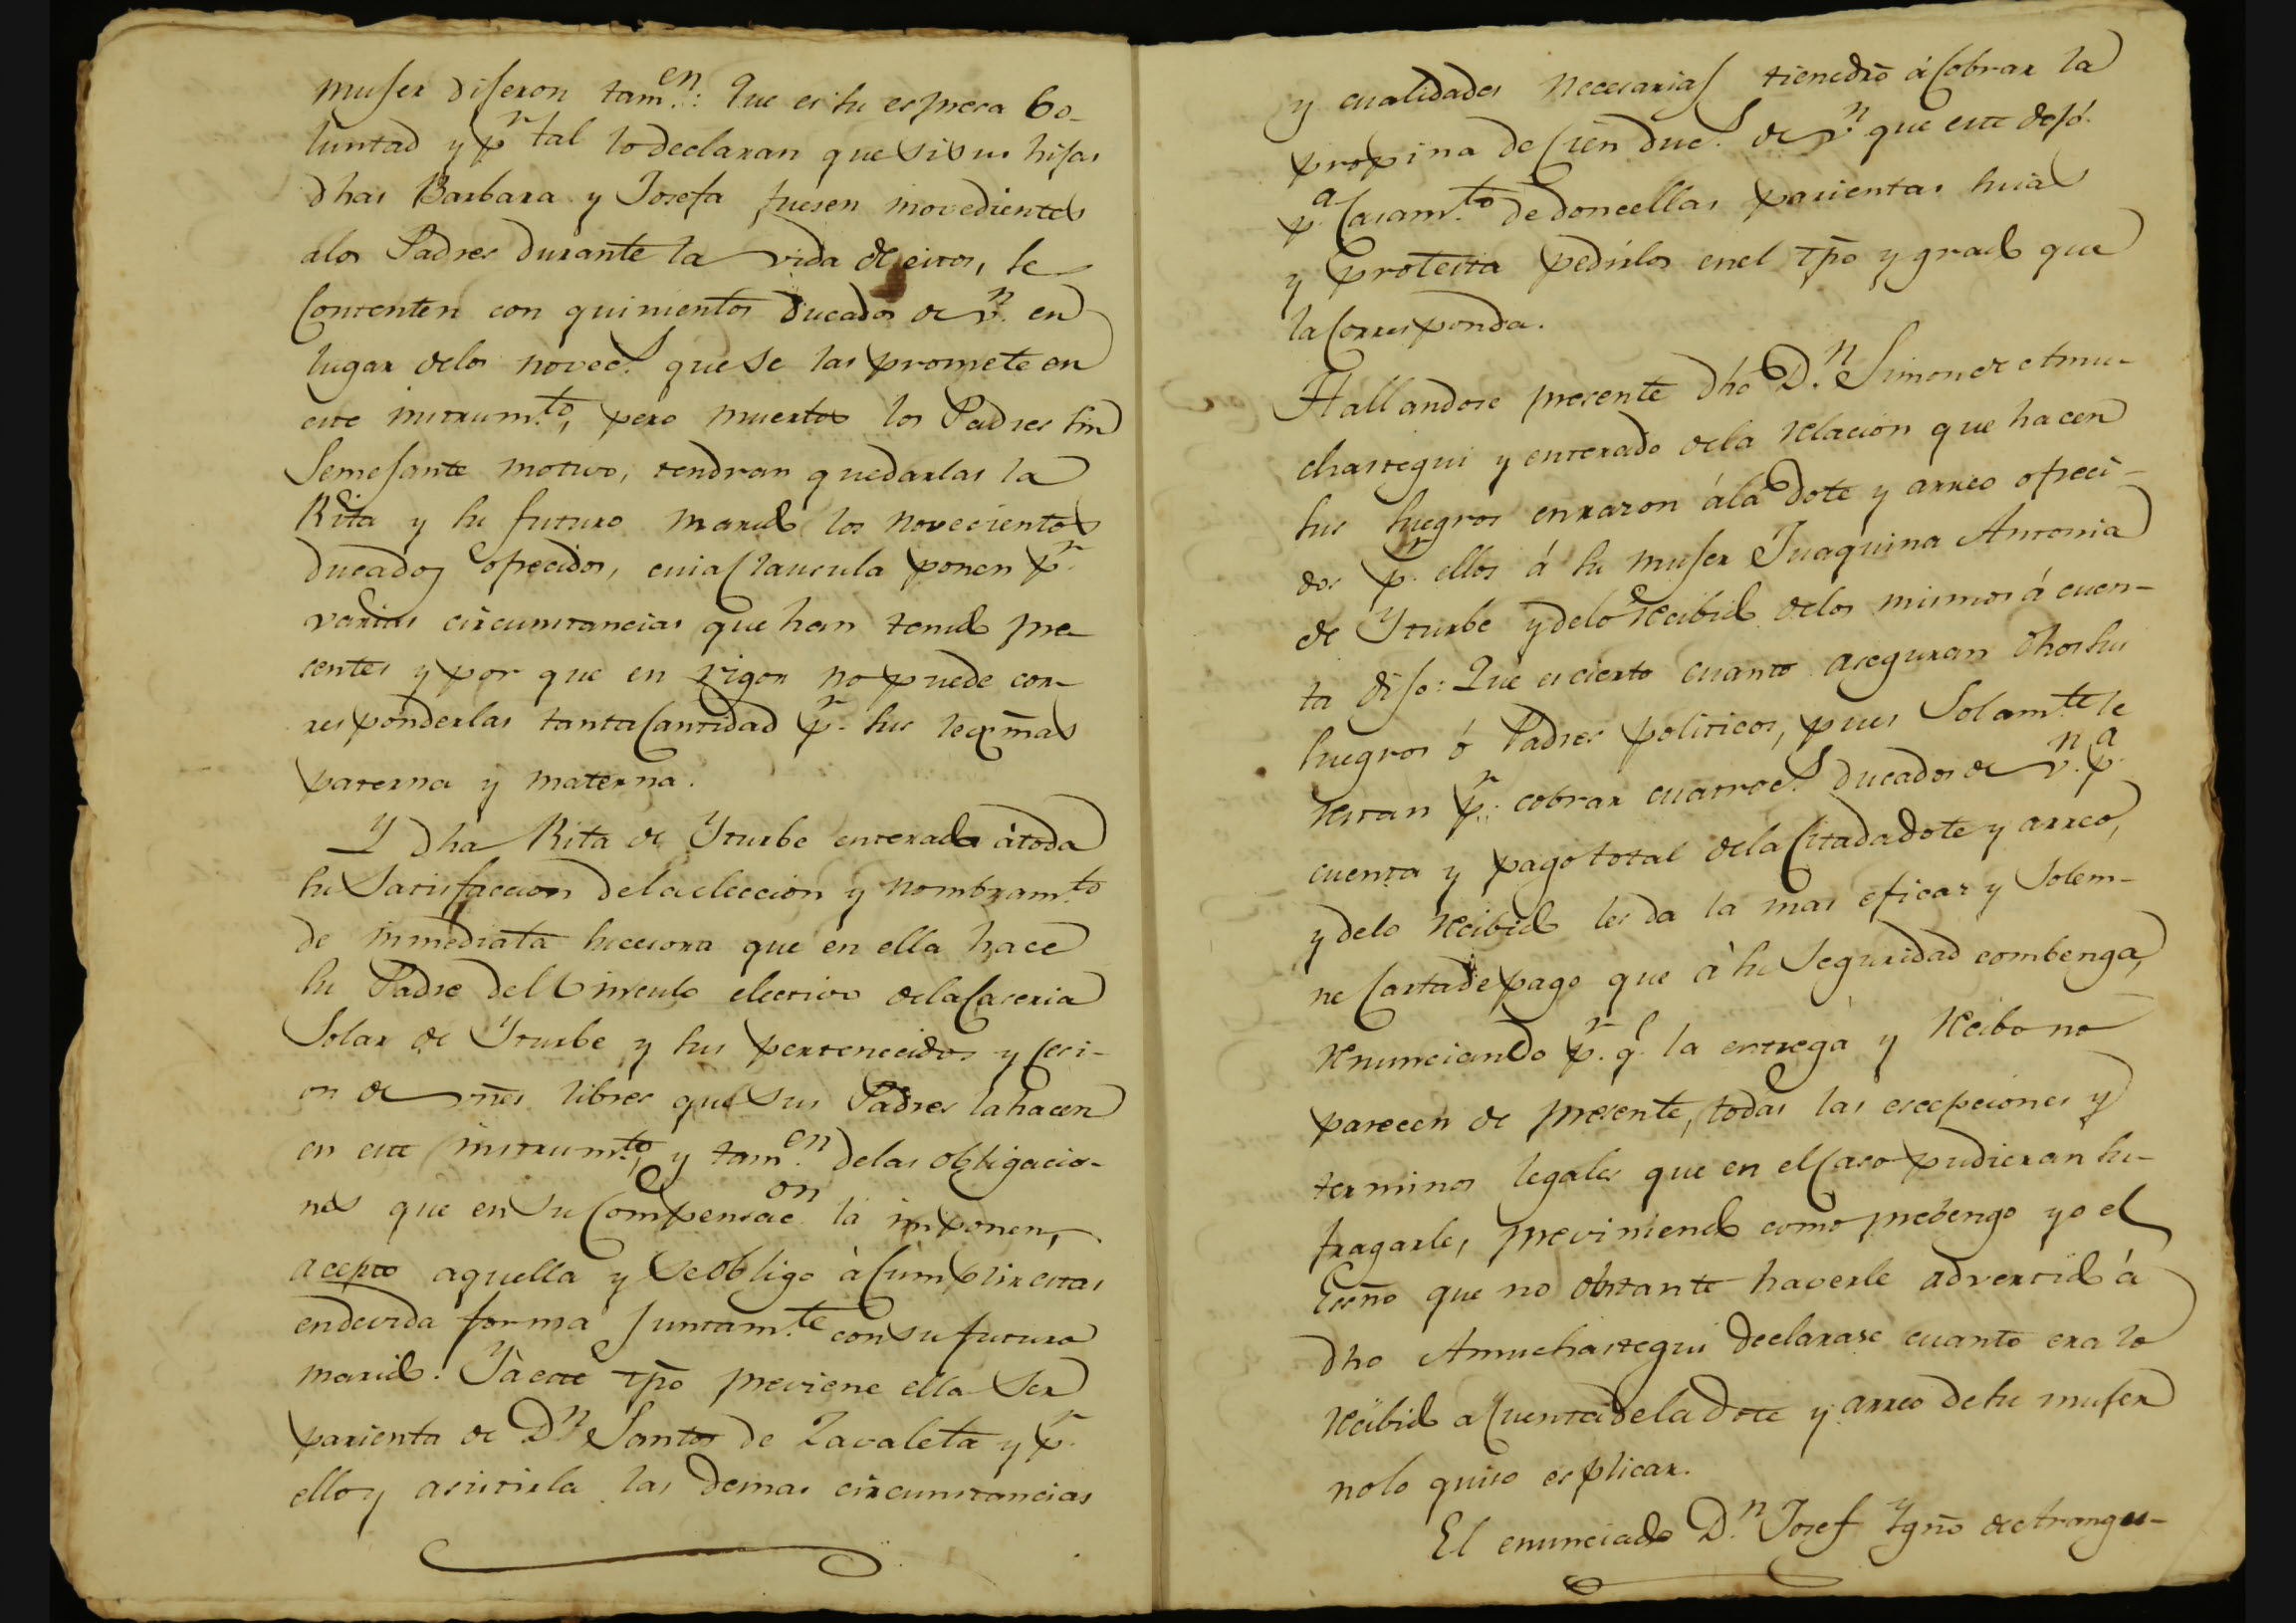 muger digeron tam.en: Que es su espresa bo-
luntad y p.r tal lo declaran que si sus hijas
dhas Barbara y Josefa fuesen inovedientes
a los Padres durante la vida de estos, se
Contenten con quinientos ducados de v.n en
lugar de los novec.s que se las promete en
este instrum.to, pero muertos los Padres sin
Semejante motivo, tendran que darlas la
Rita y su futuro marido los novecientos
ducados ofrecidos, cuia Clausula ponen p.r
varias circunstancias que han tenido pre
sentes y por que en rigor no puede cor-
responderlas tanta Cantidad p.r sus lexmas
paterna y materna.
Y dha Rita de Yturbe enterada á toda
su Satisfaccion de la eleccion y nombram.to
de inmediata sucesora que en ella hace
su Padre del Vinculo electivo de la Caseria
Solar de Yturbe y sus pertenecidos y cesi-
on de vnēs libres que sus Padres la hacen
en este instrum.to, y tam.en de las obligacio-
nes que en su Compensac.on la imponen,
acepto aquella y se obligo à Cumplir estas
en devida forma juntam.te con su futuro
marido. Y à este tp̄o previene ella ser
parienta de D.n Santos de Zavaleta y p.r
ello y asistirla las demas circunstancias
y cualidades necesarias tiene dr̄o á Cobrar la
propina de Cien duc.s de v.n que este dejó
p.a Casam.to de doncellas parientas suias
y protesta pedirlos en el tp̄o y grado que
la Corresponda.
Hallandose presente dho D.n Simon de Amu-
chastegui y enterado de la relacion que hacen
sus suegros en razon á la dote y arreo ofreci-
dos p.r ellos á su muger Juaquina Antonia
de Yturbe y de lo recibido de los mismos á cuen-
ta dijo: Que es cierto cuanto aseguran dhos sus
suegros ó Padres politicos, pues Solam.te le
restan p.r cobrar cuatroc.s ducados de v.n p.a
cuenta y pago total de la Citada dote y arreo,
y de lo recibido les da la mas eficaz y Solem-
ne Carta de pago que à su Seguridad combenga,
renunciando p.r q.e la entrega y recibo no
parecen de presente, todas las escepciones y
terminos legales que en el Caso pudieran su-
fragarle, previniendo como prebengo yo el
Essno que no obstante haverle advertido á
dho Amuchastegui declarase cuanto era lo
recibido a Cuenta de la dote y arreo de su muger
no lo quiso esplicar.
El enunciado D.n Josef Ygn̄o de Arangu-